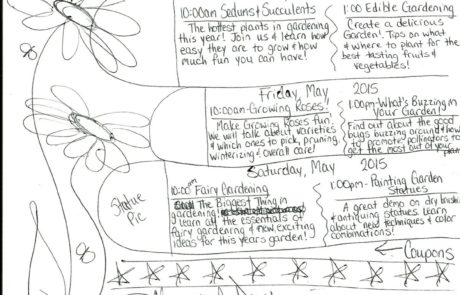 10:00am Sedums & Succulents
The hottest plants in gardening
this year! Join us & learn how
easy they are to grow & how
much fun you can have!
1:00 Edible Gardening
Create a delicious
Garden!. Tips on what
& where to plant for the
best tasting fruits &
vegetables!
Friday, May 2015
10:00am-Growing Roses
Make Growing Roses fun!
We will talk about varieties
& which ones to pick, pruning,
winterizing & overall care!
1:00pm-What's Buzzing in
Your Garden!
Find out about the good
bugs buzzing around & how
to promote pollinators to
get the most out of your
Saturday, May 2015
Statue
Pic
10:00am Fairy Gardening
The Biggest Thing in
gardening!
learn all the essentials of
fairy gardening & new exciting
ideas for this years garden!
1:00pm-Painting Garden
Statues
A great demo on dry brushing
& antiquing statues. Learn
about new techniques & color
combinations!
Coupons